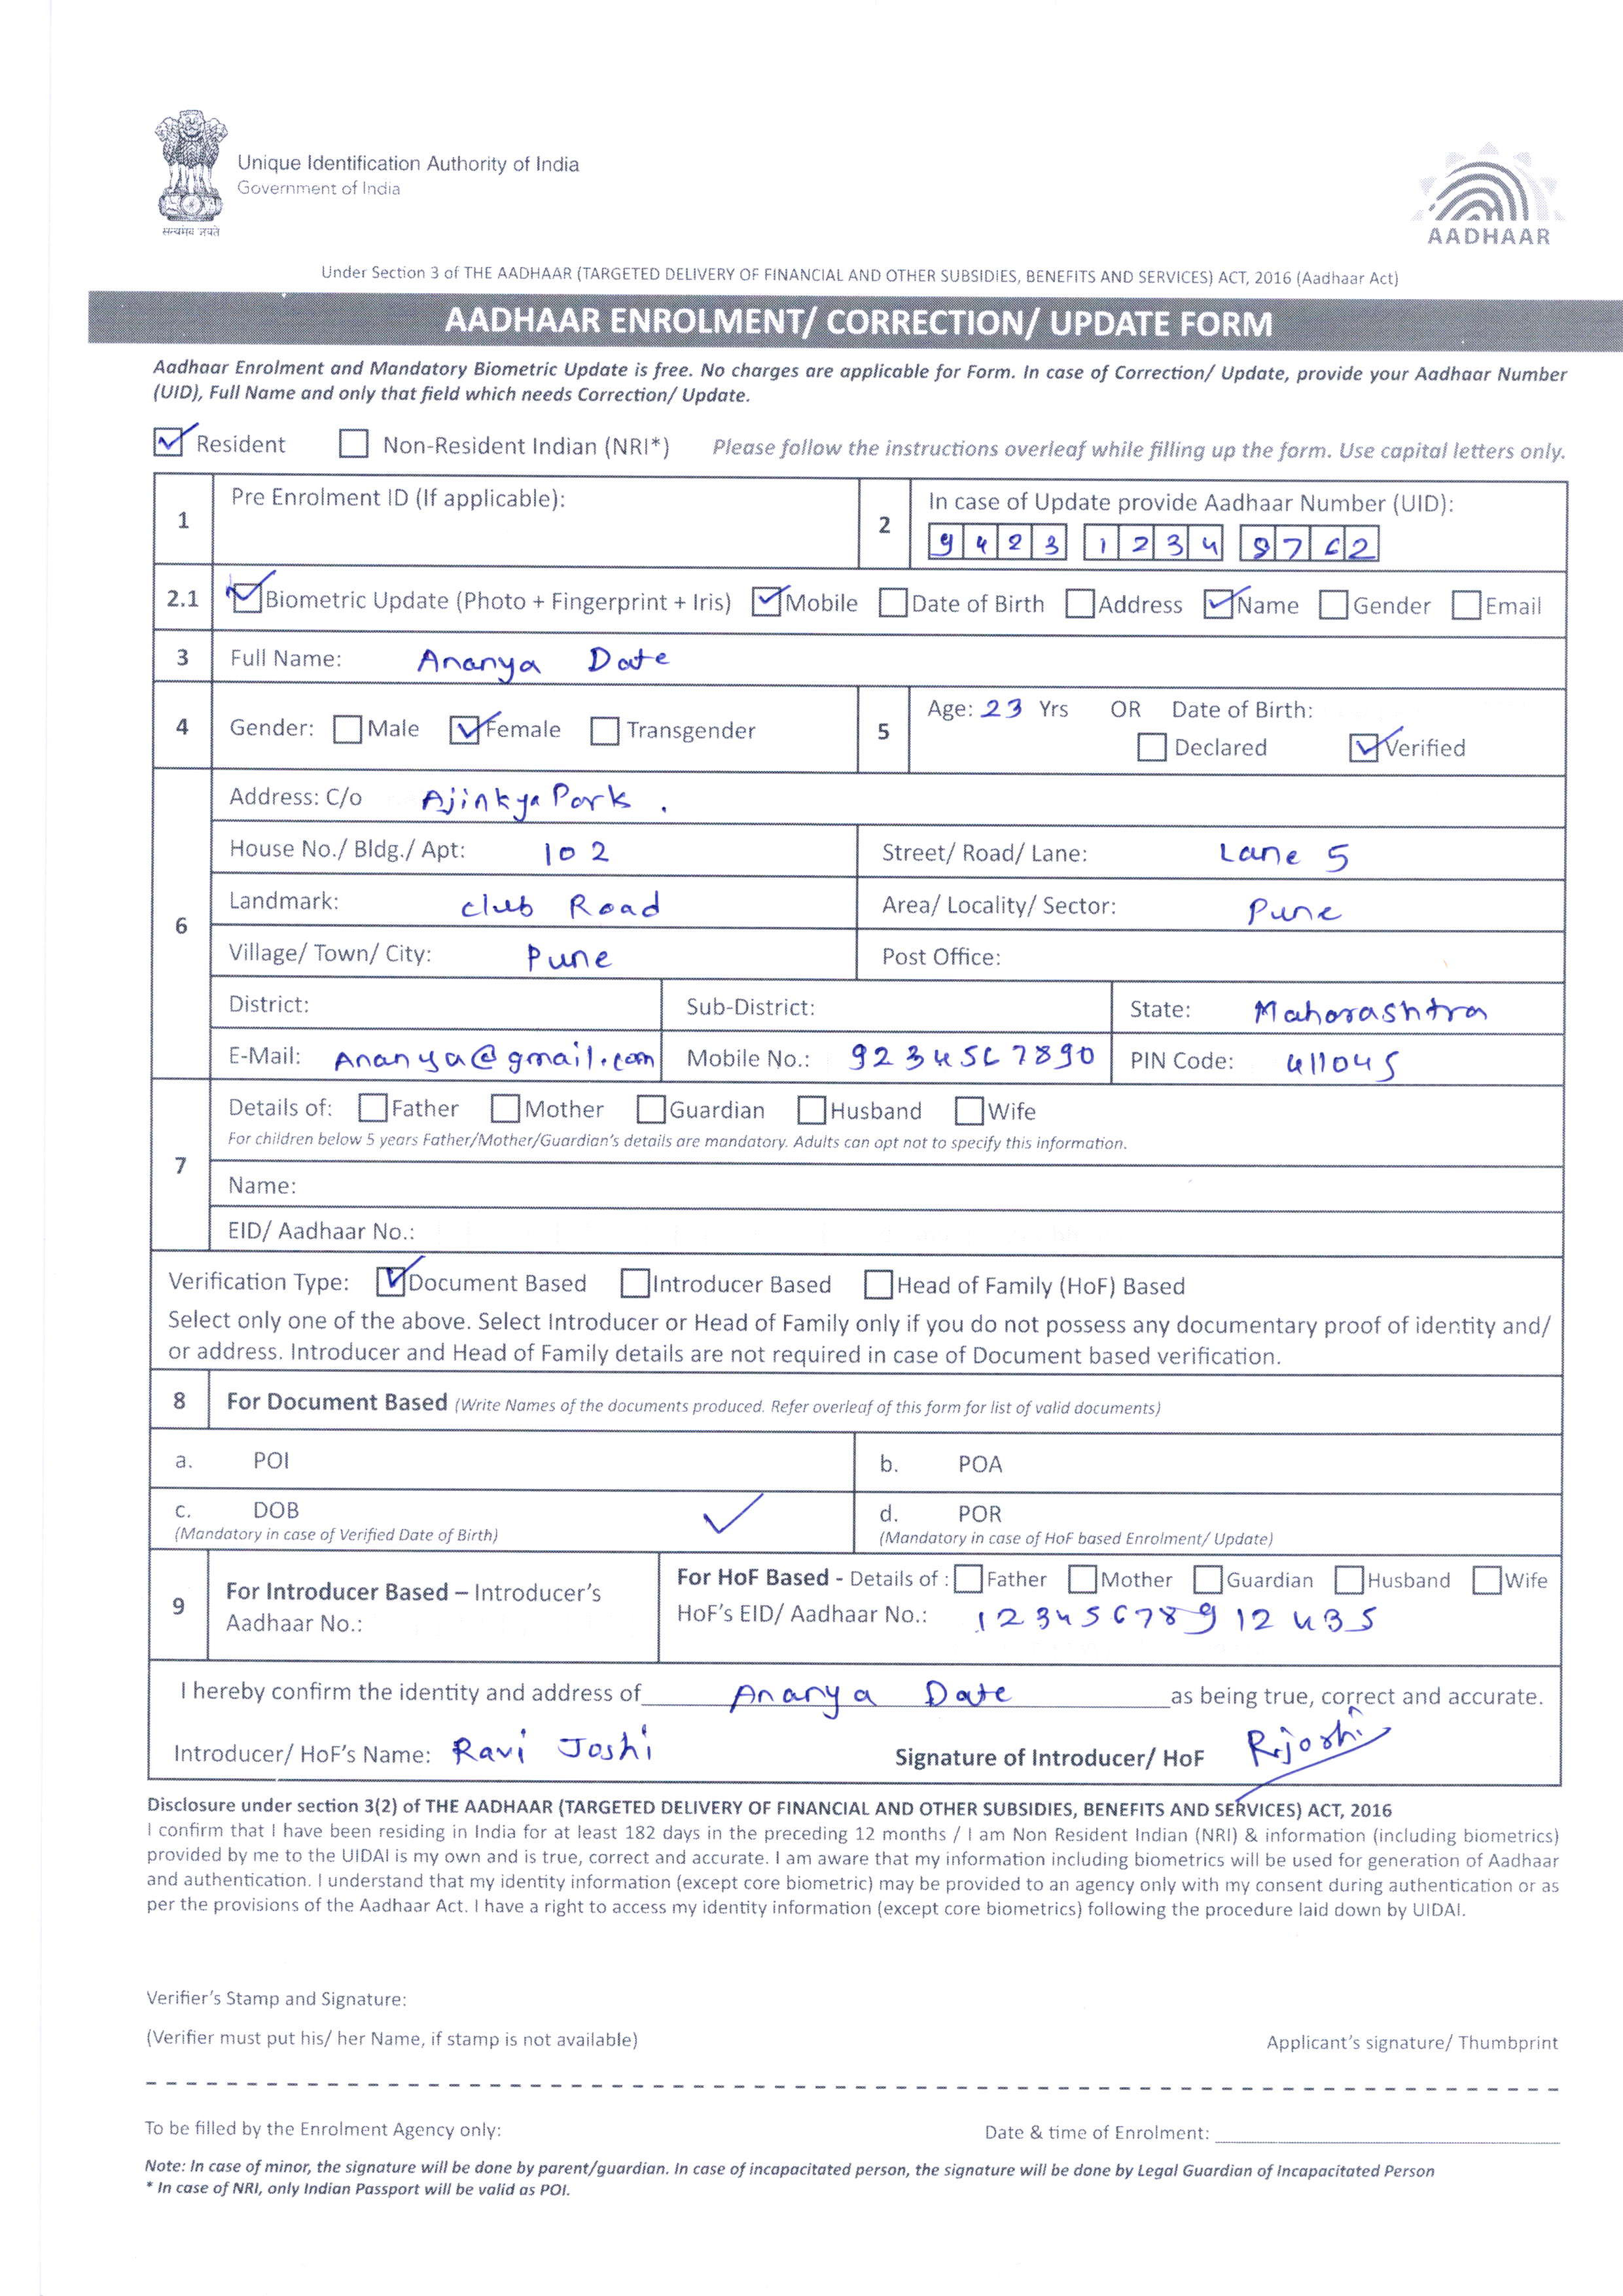 Unique Identification Authority of India
Government of India
सत्यमेव जयते
AADHAAR
Under Section 3 of THE AADHAAR (TARGETED DELIVERY OF FINANCIAL AND OTHER SUBSIDIES, BENEFITS AND SERVICES) ACT, 2016 (Aadhaar Act)
AADHAAR ENROLMENT/ CORRECTION/ UPDATE FORM
Aadhaar Enrolment and Mandatory Biometric Update is free. No charges are applicable for Form. In case of Correction/ Update, provide your Aadhaar Number
(UID), Full Name and only that field which needs Correction/ Update.
Resident Non-Resident Indian (NRI*) Please follow the instructions overleaf while filling up the form. Use capital letters only.
1 Pre Enrolment ID (If applicable):
2 In case of Update provide Aadhaar Number (UID):
9423 1234 8762
2.1 Biometric Update (Photo + Fingerprint + Iris) Mobile Date of Birth Address Name Gender Email
3 Full Name: Ananya Date
4 Gender: Male Female Transgender
5 Age: 23 Yrs OR Date of Birth:
Declared Verified
6 Address: C/o Ajinkya Park .
House No./ Bldg./ Apt: 102 Street/ Road/ Lane: Lane 5
Landmark: club Road Area/ Locality/ Sector: Pune
Village/ Town/ City: Pune Post Office:
District: Sub-District: State: Maharashtra
E-Mail: Ananya@gmail.com Mobile No.: 9234567890 PIN Code: 411045
7 Details of: Father Mother Guardian Husband Wife
For children below 5 years Father/Mother/Guardian's details are mandatory. Adults can opt not to specify this information.
Name:
EID/ Aadhaar No.:
Verification Type: Document Based Introducer Based Head of Family (HoF) Based
Select only one of the above. Select Introducer or Head of Family only if you do not possess any documentary proof of identity and/
or address. Introducer and Head of Family details are not required in case of Document based verification.
8 For Document Based (Write Names of the documents produced. Refer overleaf of this form for list of valid documents)
a. POI b. POA
c. DOB d. POR
(Mandatory in case of Verified Date of Birth) (Mandatory in case of HoF based Enrolment/ Update)
9 For Introducer Based – Introducer's
Aadhaar No.:
For HoF Based - Details of : Father Mother Guardian Husband Wife
HoF's EID/ Aadhaar No.: 123456789 12435
I hereby confirm the identity and address of Ananya Date as being true, correct and accurate.
Introducer/ HoF's Name: Ravi Joshi Signature of Introducer/ HoF Rjoshi
Disclosure under section 3(2) of THE AADHAAR (TARGETED DELIVERY OF FINANCIAL AND OTHER SUBSIDIES, BENEFITS AND SERVICES) ACT, 2016
I confirm that I have been residing in India for at least 182 days in the preceding 12 months / I am Non Resident Indian (NRI) & information (including biometrics)
provided by me to the UIDAI is my own and is true, correct and accurate. I am aware that my information including biometrics will be used for generation of Aadhaar
and authentication. I understand that my identity information (except core biometric) may be provided to an agency only with my consent during authentication or as
per the provisions of the Aadhaar Act. I have a right to access my identity information (except core biometrics) following the procedure laid down by UIDAI.
Verifier's Stamp and Signature:
(Verifier must put his/ her Name, if stamp is not available) Applicant's signature/ Thumbprint
To be filled by the Enrolment Agency only: Date & time of Enrolment:
Note: In case of minor, the signature will be done by parent/guardian. In case of incapacitated person, the signature will be done by Legal Guardian of Incapacitated Person
* In case of NRI, only Indian Passport will be valid as POI.